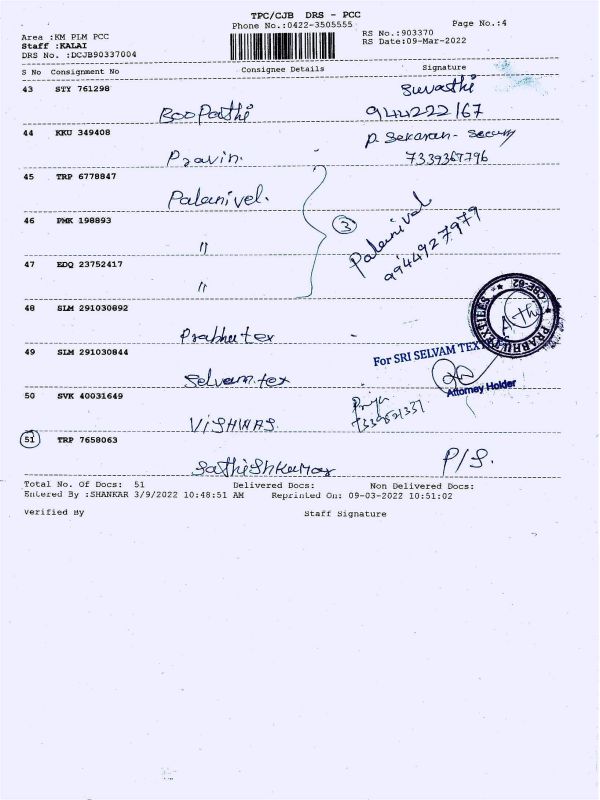 TPC/CJB DRS - PCC
Phone No.:0422-3505555
Page No.:4
Area :KM PLM PCC
Staff :KALAI
DRS No. :DCJB90337004
RS No.:903370
RS Date:09-Mar-2022
S No Consignment No Consignee Details Signature
43 STY 761298 Suvasthi
Boopathi 944222167
44 KKU 349408 P. Sekaran - Security
Pravin. 7339367796
45 TRP 6778847
Palanivel.
46 PMK 198893 3 Palanival
" 9944927979
47 EDQ 23752417
"
48 SLM 291030892
Prabhu tex
PRABHU TEXTILES
49 SLM 291030844 For SRI SELVAM TEX
Selvam tex Attorney Holder
50 SVK 40031649 Priya
VISHWAS.
51 TRP 7658063
Sathishkumar P/S.
Total No. Of Docs: 51 Delivered Docs: Non Delivered Docs:
Entered By :SHANKAR 3/9/2022 10:48:51 AM Reprinted On: 09-03-2022 10:51:02
Verified By Staff Signature